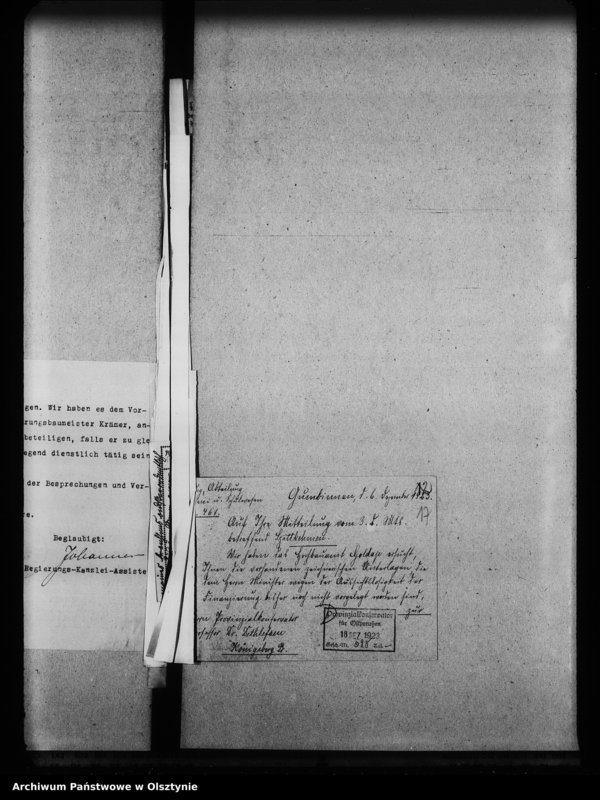 gen. Wir haben es dem Vor-
rungsbaumeister Krämer, an-
beteiligen, falls er zu gle
egend dienstlich tätig sein
der Besprechungen und Ver-
e.
Beglaubigt:
Johannes
Regierungs-Kanzlei-Assiste
Abteilung
u. Schulwesen
Gumbinnen, d. 6. Dezember 1923.
17
Auf Ihre Mitteilung vom 3. d. Mts.
betreffend
Wir haben das Hochbauamt Goldap ersucht,
Ihnen die vorhandenen zeichnerischen Unterlagen die
dem Herrn Minister wegen der Aussichtslosigkeit der
Finanzierung bisher noch nicht vorgelegt worden sind,
zur
Herrn Provinzialkonservator
Professor Dr. Dethlefsen
Königsberg Pr.
Provinzialkonservator
für Ostpreußen
18 DEZ. 1923
Archiwum Państwowe w Olsztynie